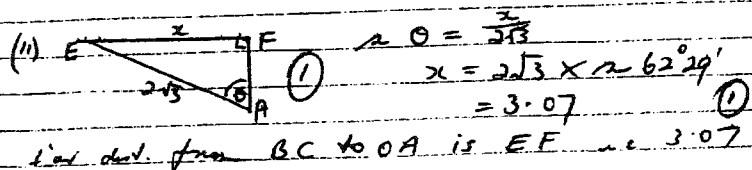 (ii) E x F sin θ = x/2√3
2√3 θ A ① x = 2√3 × sin 62°29'
= 3.07 ①
dist. from BC to OA is EF i.e 3.07